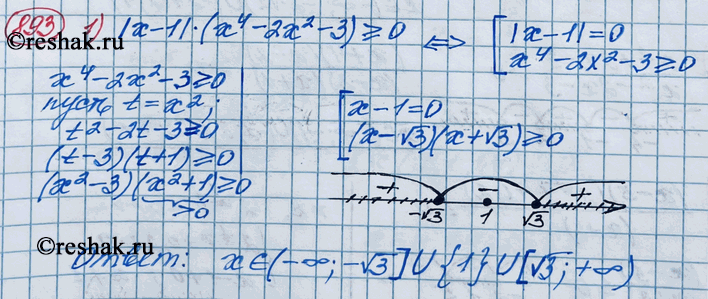 893 1) |x-1|·(x⁴-2x²-3)≥0 ⇔ [ |x-1|=0
©reshak.ru
x⁴-2x²-3≥0
x⁴-2x²-3≥0
пусть t=x²;
t²-2t-3≥0
(t-3)(t+1)≥0
(x²-3)(x²+1)≥0
>0
[ x-1=0
(x-√3)(x+√3)≥0
+ − +
-√3 1 √3
©reshak.ru
Ответ: x∈(-∞;-√3]∪{1}∪[√3;+∞)